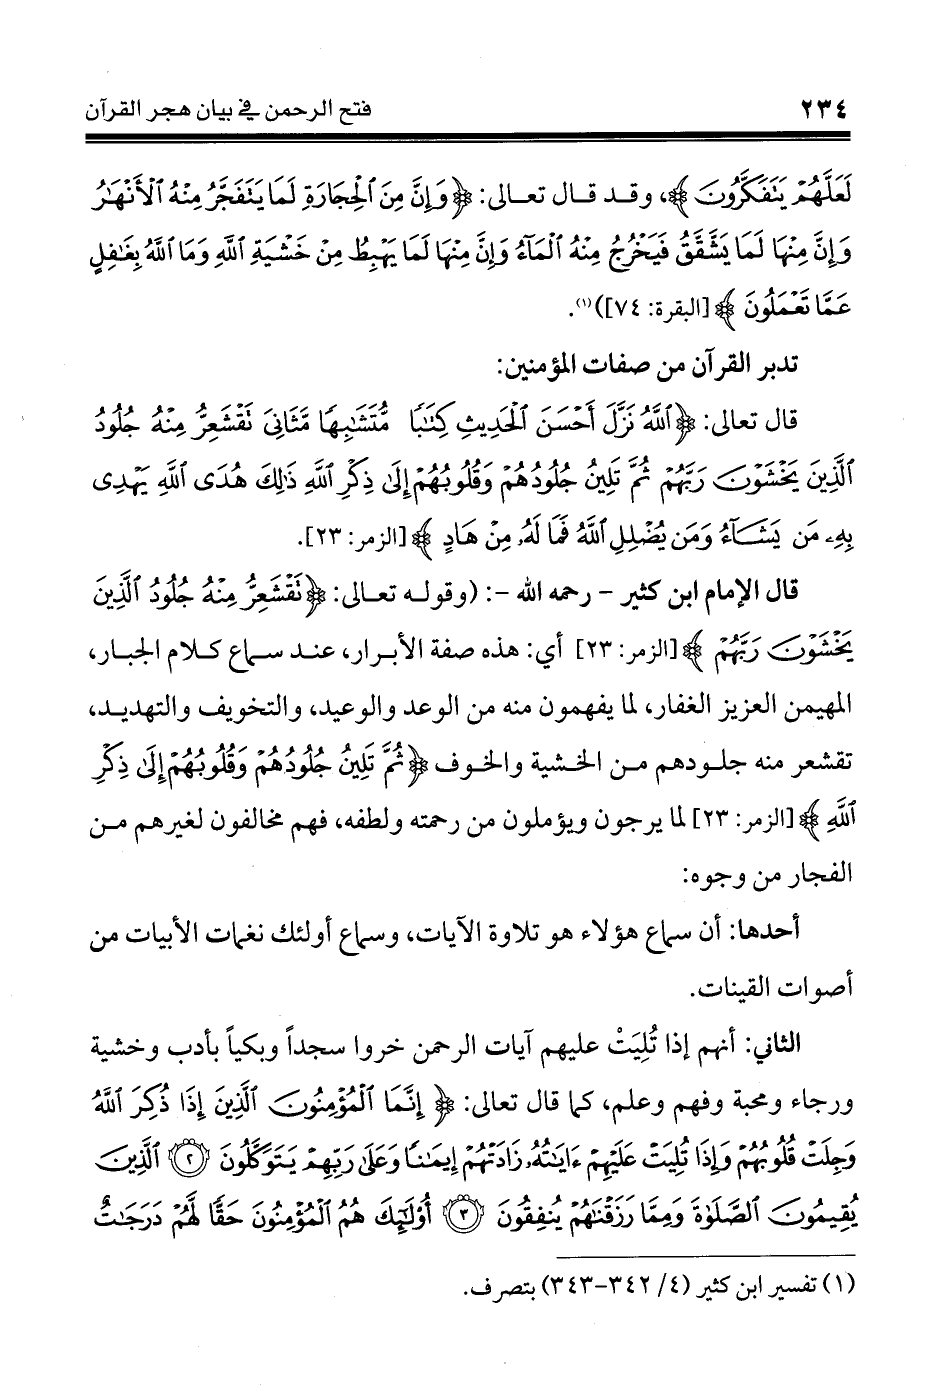 ٢٣٤ فتح الرحمن في بيان هجر القرآن
لَعَلَّهُمْ يَتَفَكَّرُونَ ﴾، وقد قال تعالى: ﴿ وَإِنَّ مِنَ ٱلْحِجَارَةِ لَمَا يَتَفَجَّرُ مِنْهُ ٱلْأَنْهَٰرُ
وَإِنَّ مِنْهَا لَمَا يَشَّقَّقُ فَيَخْرُجُ مِنْهُ ٱلْمَآءُ وَإِنَّ مِنْهَا لَمَا يَهْبِطُ مِنْ خَشْيَةِ ٱللَّهِ وَمَا ٱللَّهُ بِغَٰفِلٍ
عَمَّا تَعْمَلُونَ ﴾ [البقرة: ٧٤])(١).
تدبر القرآن من صفات المؤمنين:
قال تعالى: ﴿ ٱللَّهُ نَزَّلَ أَحْسَنَ ٱلْحَدِيثِ كِتَٰبًا مُّتَشَٰبِهًا مَّثَانِىَ تَقْشَعِرُّ مِنْهُ جُلُودُ
ٱلَّذِينَ يَخْشَوْنَ رَبَّهُمْ ثُمَّ تَلِينُ جُلُودُهُمْ وَقُلُوبُهُمْ إِلَىٰ ذِكْرِ ٱللَّهِ ذَٰلِكَ هُدَى ٱللَّهِ يَهْدِى
بِهِۦ مَن يَشَآءُ وَمَن يُضْلِلِ ٱللَّهُ فَمَا لَهُۥ مِنْ هَادٍ ﴾ [الزمر: ٢٣].
قال الإمام ابن كثير – رحمه الله –: (وقوله تعالى: ﴿ تَقْشَعِرُّ مِنْهُ جُلُودُ ٱلَّذِينَ
يَخْشَوْنَ رَبَّهُمْ ﴾ [الزمر: ٢٣] أي: هذه صفة الأبرار، عند سماع كلام الجبار،
المهيمن العزيز الغفار، لما يفهمون منه من الوعد والوعيد، والتخويف والتهديد،
تقشعر منه جلودهم من الخشية والخوف ﴿ ثُمَّ تَلِينُ جُلُودُهُمْ وَقُلُوبُهُمْ إِلَىٰ ذِكْرِ
ٱللَّهِ ﴾ [الزمر: ٢٣] لما يرجون ويؤملون من رحمته ولطفه، فهم مخالفون لغيرهم من
الفجار من وجوه:
أحدها: أن سماع هؤلاء هو تلاوة الآيات، وسماع أولئك نغمات الأبيات من
أصوات القينات.
الثاني: أنهم إذا تُلِيَتْ عليهم آيات الرحمن خروا سجداً وبكياً بأدب وخشية
ورجاء ومحبة وفهم وعلم، كما قال تعالى: ﴿ إِنَّمَا ٱلْمُؤْمِنُونَ ٱلَّذِينَ إِذَا ذُكِرَ ٱللَّهُ
وَجِلَتْ قُلُوبُهُمْ وَإِذَا تُلِيَتْ عَلَيْهِمْ ءَايَٰتُهُۥ زَادَتْهُمْ إِيمَٰنًا وَعَلَىٰ رَبِّهِمْ يَتَوَكَّلُونَ ٢ ٱلَّذِينَ
يُقِيمُونَ ٱلصَّلَوٰةَ وَمِمَّا رَزَقْنَٰهُمْ يُنفِقُونَ ٣ أُوْلَٰٓئِكَ هُمُ ٱلْمُؤْمِنُونَ حَقًّا لَّهُمْ دَرَجَٰتٌ
(١) تفسير ابن كثير (٤/ ٣٤٢-٣٤٣) بتصرف.